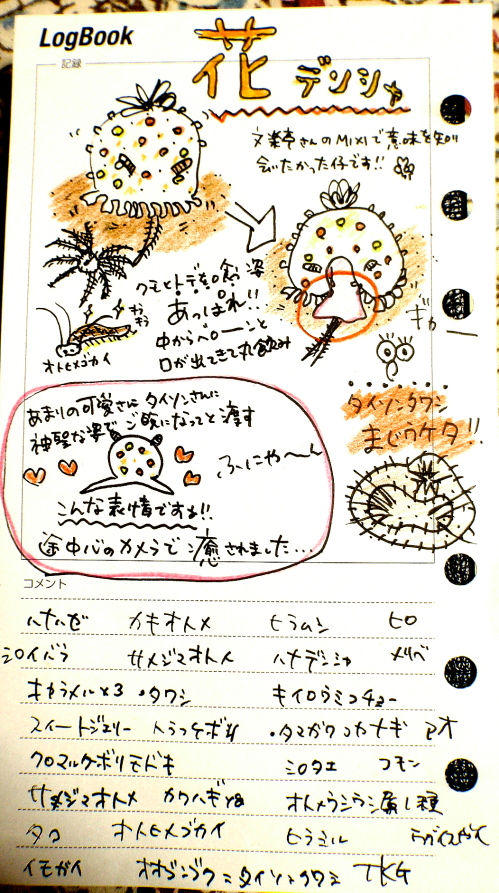 LogBook
記録
花デンシャ
文楽亭さんのMIXIで意味を知り
会いたかった仔です!!
クモヒトデを喰う姿
あっぱれ!!
中からペローンと
口が出てきて丸飲み
オトヒメゴカイ
タイソンタワシ
まじウケタ!!
あまりの可愛さにタイソンさんに
神聖な姿でご飯になってと渡す
ふにゃ〜ん
こんな表情ですョ!!
途中心のカメラで癒されました…
コメント
ハナハゼ カキオトメ ヒラムシ ヒロ
シロイバラ サメジマオトメ ハナデンシャ メリベ
キャラメル×3 ・タワシ キイロウミコチョー
スイートジェリー
クロマルケボリモドキ シロタエ コモン
サメジマオトメ オトメウミウシ属1種
タコ オトヒメゴカイ ヒラミル
イモガイ TKG